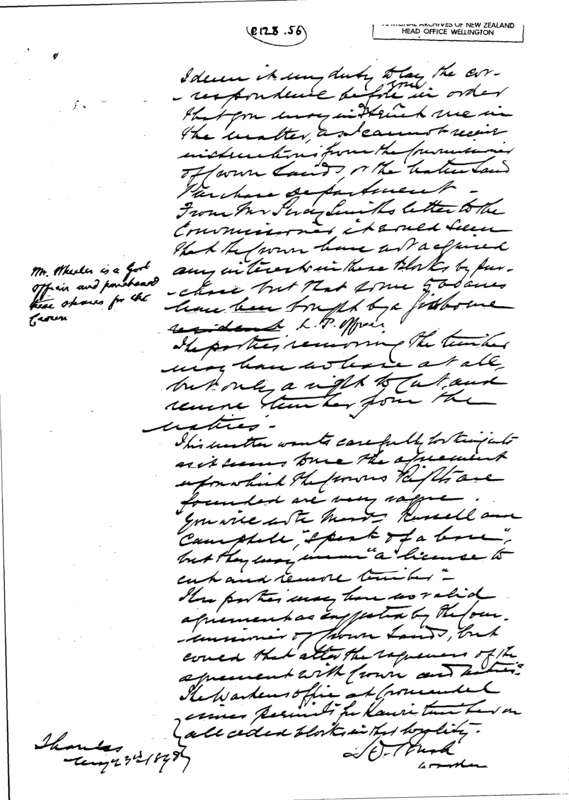 C128.56
NATIONAL ARCHIVES OF NEW ZEALAND
HEAD OFFICE WELLINGTON
I deem it my duty to lay the cor-
-respondence before you in order
that you may instruct me in
the matter, as I cannot receive
instructions from the Commissioner
of Crown Lands, or the Native Land
Purchase Department -
From Mr Percy Smith's letter to the
Commissioner, it would seem
that the Crown have not acquired
any interests in these Blocks by pur-
-chase but that some
have been bought by a Gisborne
resident L.P. Officer
The parties removing the timber
may have no lease at all,
but only a right to cut and
remove timber from the
natives -
This matter wants carefully looking into
as it seems to me the agreement
upon which the Crowns Rights are
founded are very vague.
You will note Messrs Russell and
Campbell, "speak of a lease",
but they may mean "a license to
cut and remove timber" -
The parties may have no valid
agreement as suggested by the Com-
-missioner of Crown Lands, but
could that alter the vagueness of the
agreement with Crown and natives?
The Wardens office at Coromandel
issues permits for Kauri timber on
all ceded blocks in that locality.
Mr. Wheeler is a Govt
Officer and purchased
these shares for the
Crown
Thames
23rd 1898
Bush
Warden